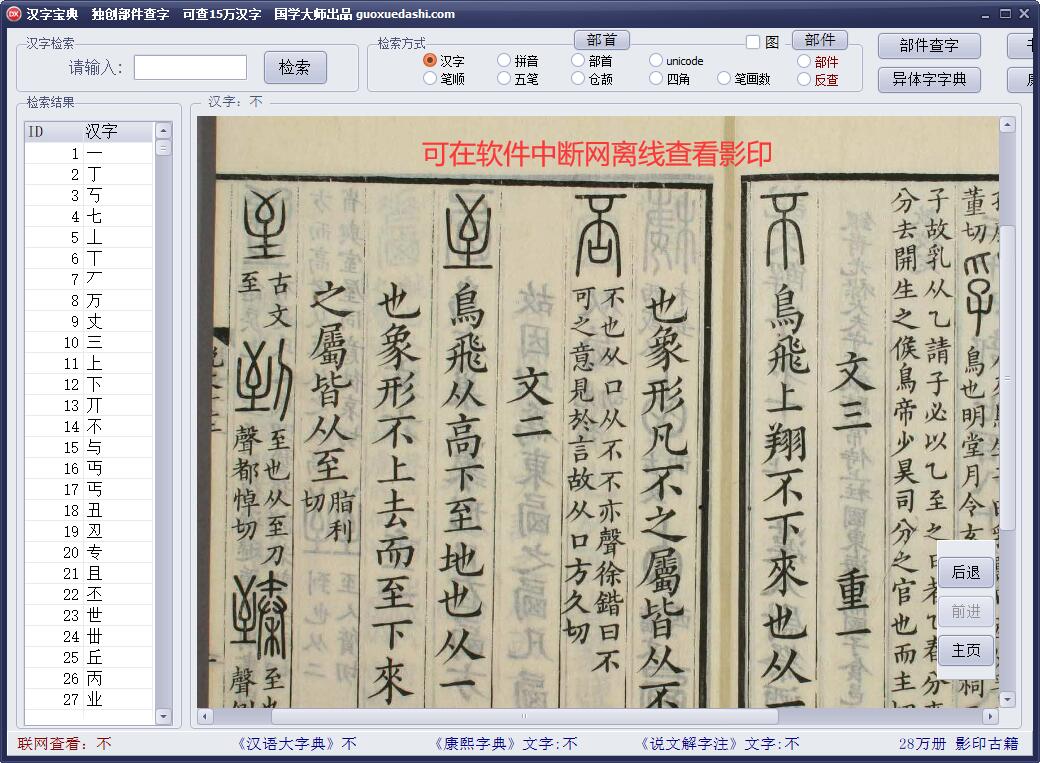 汉字宝典 独创部件查字 可查15万汉字 国学大师出品 guoxuedashi.com
汉字检索
请输入:
检索
检索方式
部首
图
部件
汉字 拼音 部首 unicode 部件
笔顺 五笔 仓颉 四角 笔画数 反查
部件查字
异体字字典
检索结果
ID 汉字
1 一
2 丁
3 丂
4 七
5 丄
6 丅
7 丆
8 万
9 丈
10 三
11 上
12 下
13 丌
14 不
15 与
16 丏
17 丐
18 丑
19 丒
20 专
21 且
22 丕
23 世
24 丗
25 丘
26 丙
27 业
汉字: 不
可在软件中断网离线查看影印
董切
鳥也明堂月令
子故乳从乙請子必以乙至之
分去開生之候鳥帝少昊司分之官也而主
文三 重一
鳥飛上翔不下來也从一
也象形凡不之屬皆从不
不也从口从不不亦聲徐鍇曰不
可之意見於言故从口方久切
文二
鳥飛从高下至地也从一
也象形不上去而至下來
之屬皆从至
脂利
切
古文
至
至也从至刀
聲都悼切
至也
聲
后退
前进
主页
联网查看: 不
《汉语大字典》不
《康熙字典》文字:不
《说文解字注》文字:不
28万册 影印古籍